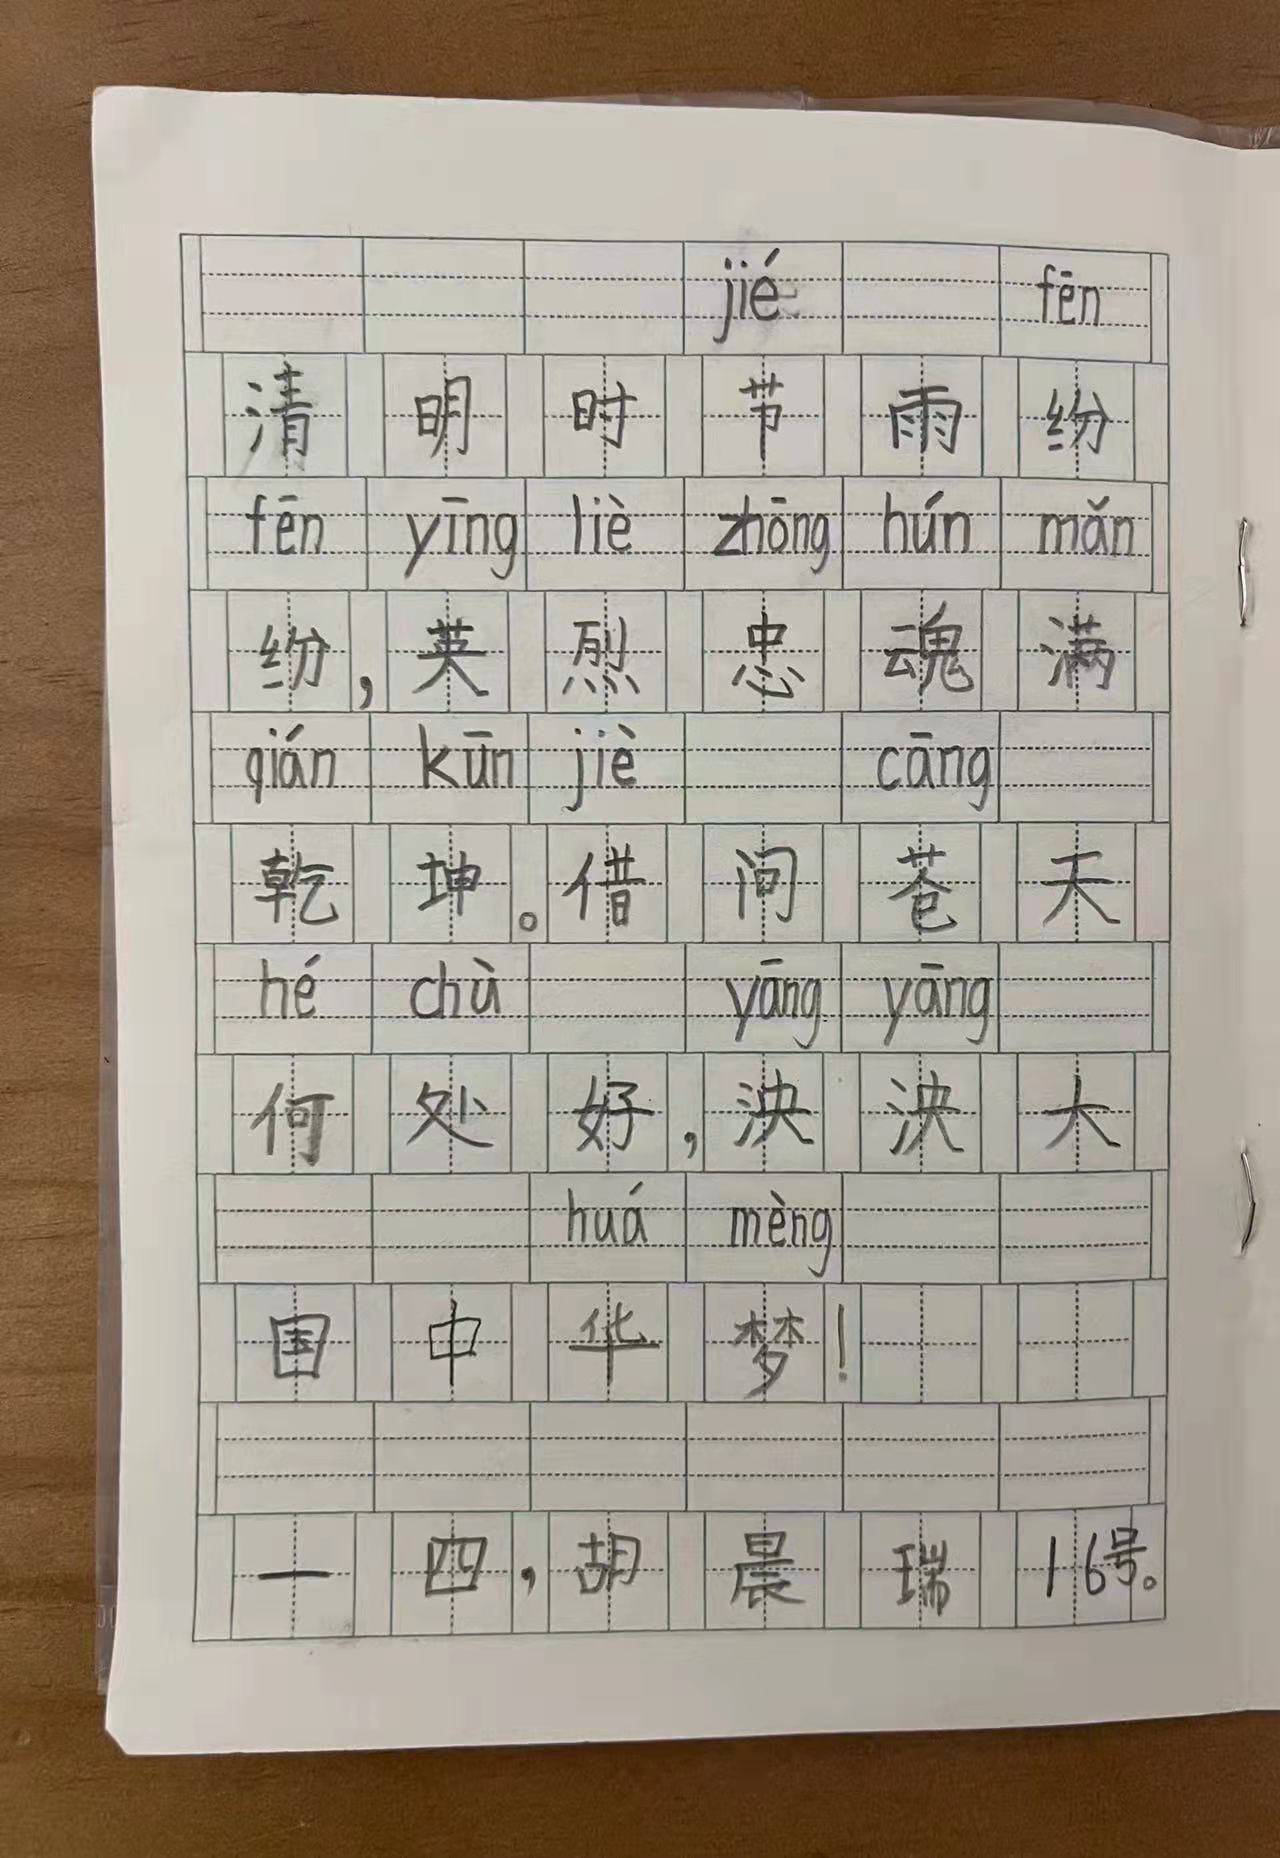 jié fēn
清明时节雨纷
fēn yīng liè zhōng hún mǎn
纷，英烈忠魂满
qián kūn jiè cāng
乾坤。借问苍天
hé chù yāng yāng
何处好，泱泱大
huá mèng
国中华梦！
一四，胡晨瑞16号。